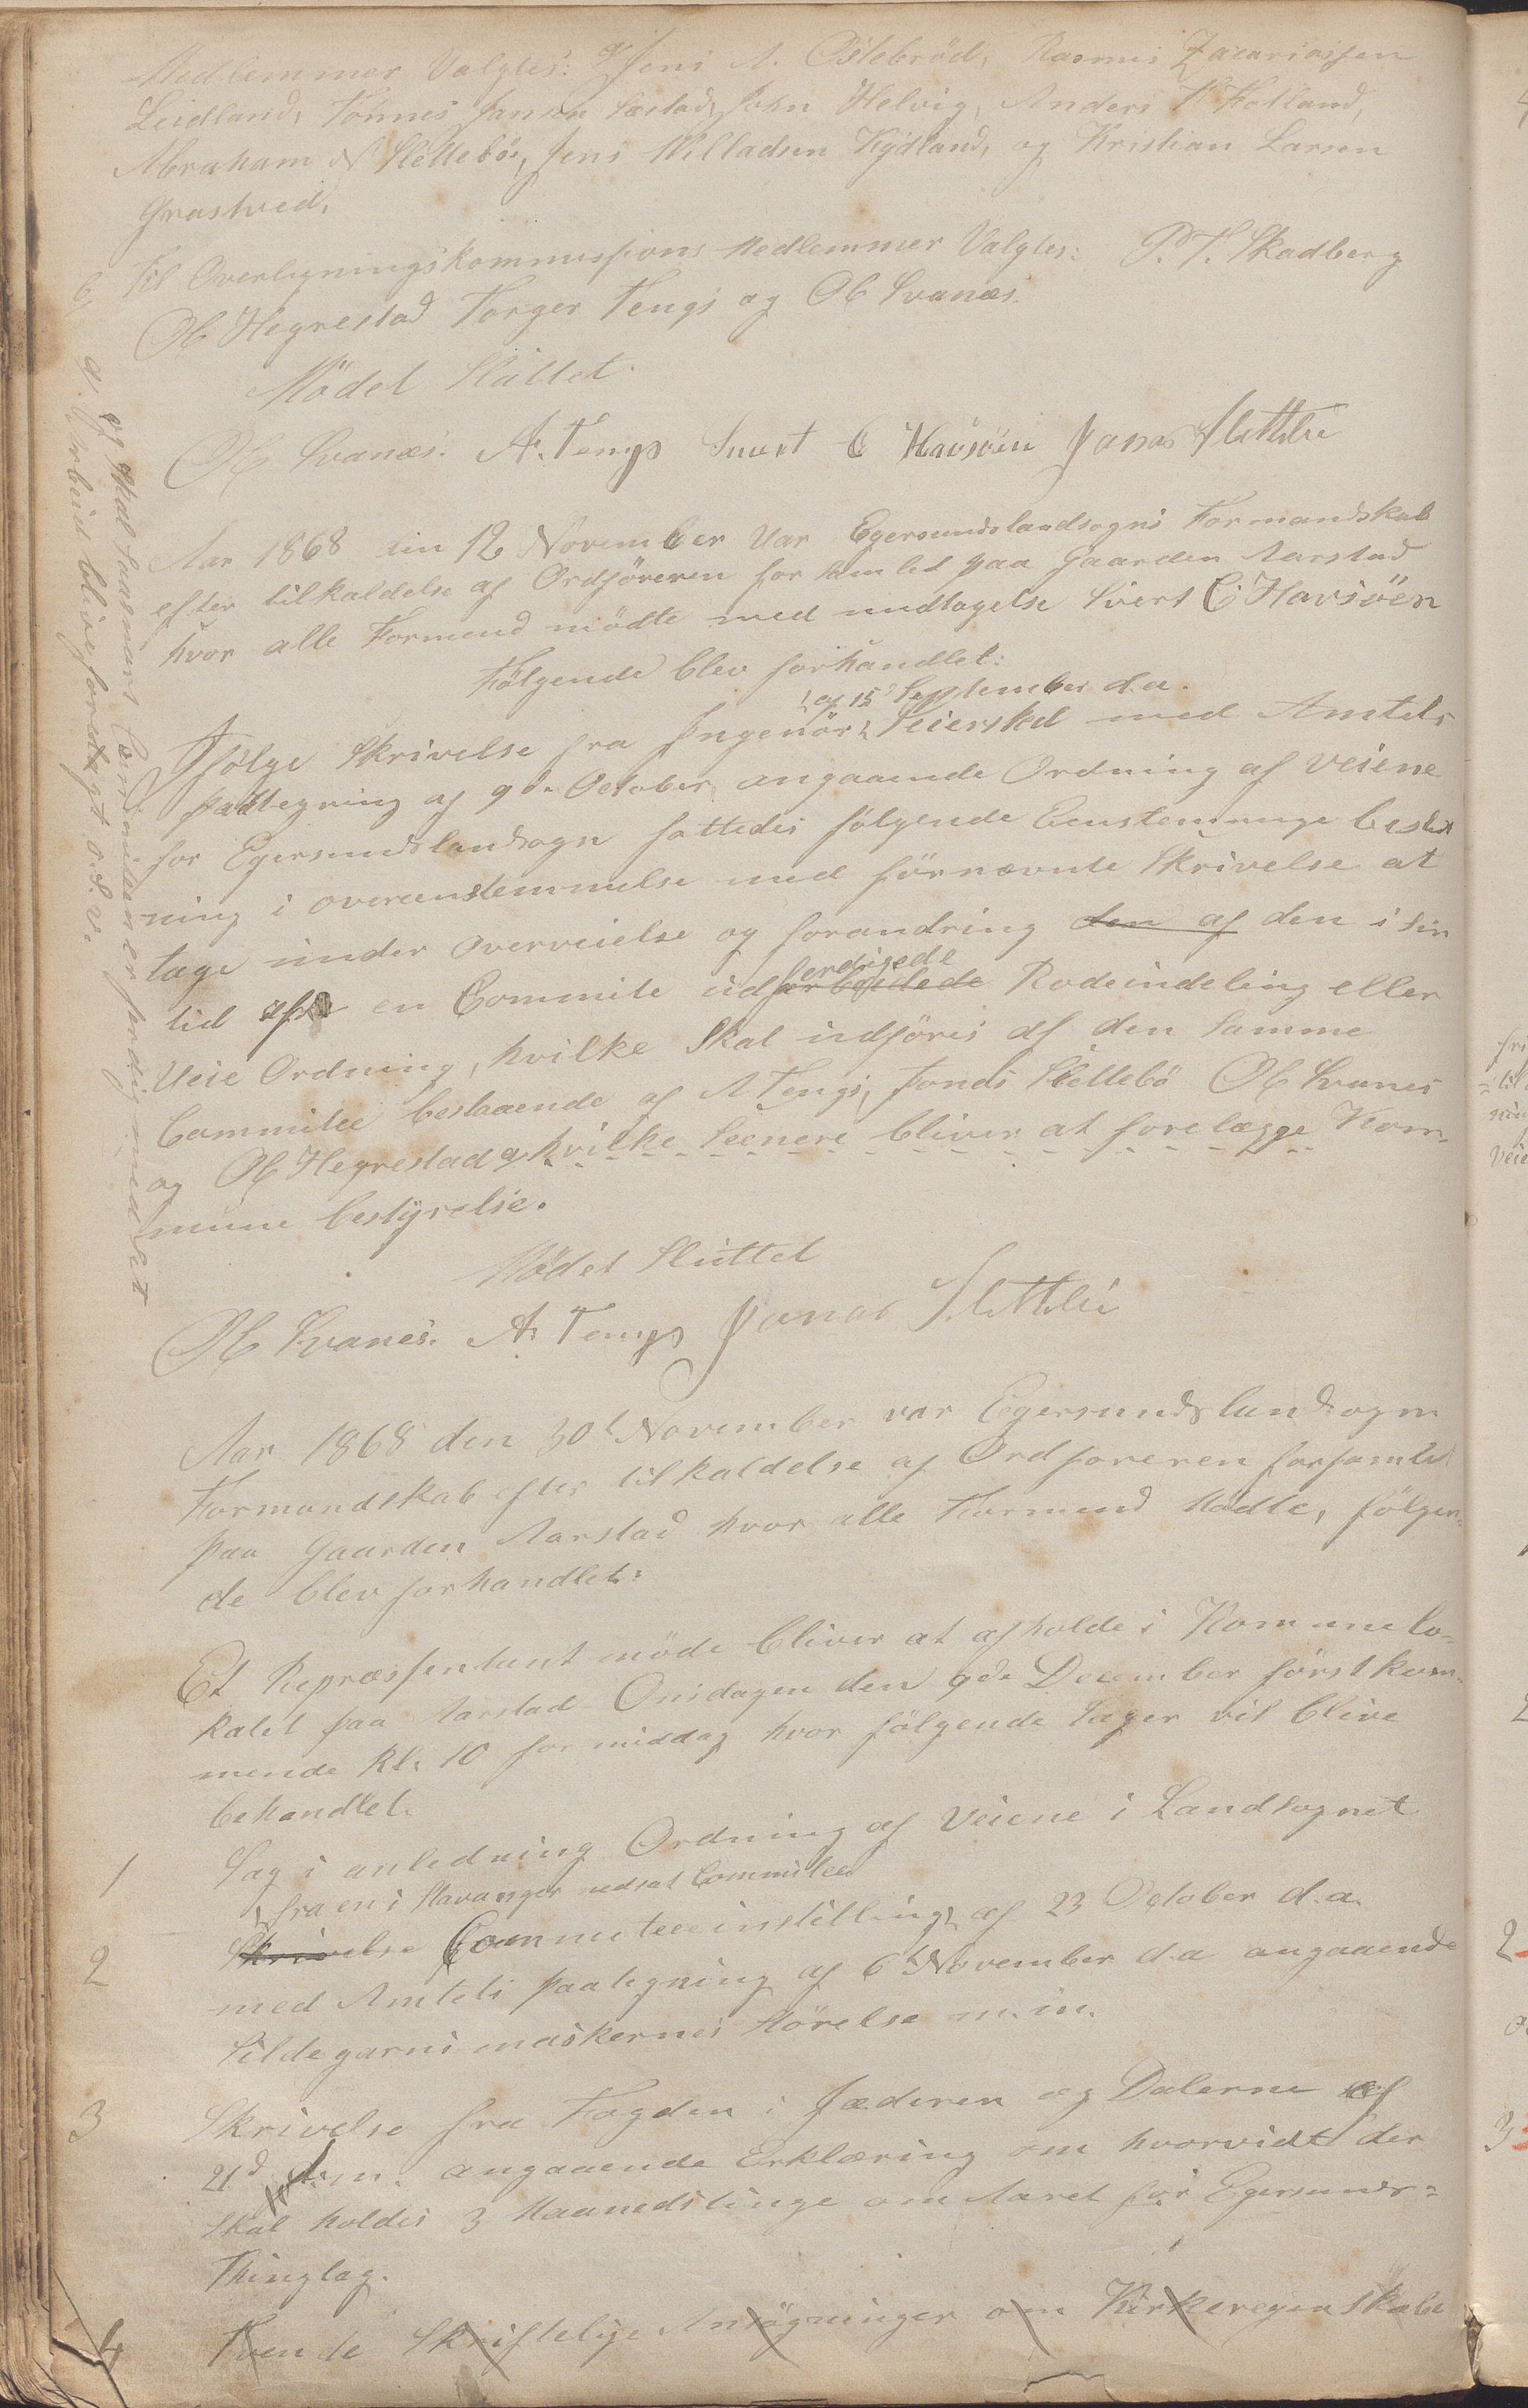 Medlemmer Valgtes: Jens A. Østebröd, Rasmus Zacariassen
Leidland, Tönnes Jansen Sæstad, John Helvig, Anders T Hetland,
Abraham N Slettebö, Jens Willadsen Kydland, og Kristian Larsen
Grastveid,
6, til Overligningskommissions Medlemmer Valgtes: P. T. Skadberg
Ol Hegrestad Torger Tengs og Ol Svanæs.
Mödet Sluttet.
Ol Svanæs. A. Tengs Sivert C Havsöen Jonas Slettebö
Aar 1868 den 12 November Var Egersundslandsogns Formandskab
efter tilkaldelse af Ordföreren forsamlet paa Gaarden Aarstad
hvor alle Formend mödte med undtagelse Sivert C Havsöen
Fölgende blev forhandlet:
af 15d September d.a.
Ifölge Skrivelse fra Ingenör Seierskel med Amtets
paategning af 9de October angaaende Ordning af Veiene
for Egersundslandsogn fattedes fölgende Eenstemmige beslut
ning i overeenstemmelse med förnævnte Skrivelse at
tage under Overveielse og forandring den af den i sin
ferdigede
tid af en Commite udarbeidede Rodeindeling eller
Veie Ordning, hvilke Skal udföres af den Samme
Commitee bestaaende af A Tengs, Jonas Slettebö Ol Svanes
og Ol Hegrestad og hvilke Seenere bliver at forelægge Kom-
mune bestyrelse.
og skal saasnart Comiteen er ferdig med det
Arbeid blive foretagt o.s.v.
Mödet Sluttet
Ol Svanes. A. Tengs Jonas Slettebö
Aar 1868 den 30t November var Egersunds landsogns
Formandskab efter tilkaldelse af Ordföreren forsamlet
paa Gaarden Aarstad hvor alle Formend Mödte, fölgen-
de blev forhandlet:
Et Repræssentant möde bliver at afholde i Kommunelo-
kalet paa Aarstad Onsdagen den 9de December först kom-
mende Kl. 10 formiddag hvor fölgende Sager vil blive
behandlet.
1 Sag i anledning Ordning af Veiene i Landsognet
fra en i Stavanger nedsat Commitee
2 Skrivelse Commuteeinstilling af 23 October d.a.
med Amtets paategning af 6t November d.a angaaende
Sildegarns maskernes Störelse m.m.
3 Skrivelse fra Fogden i Jæderen og Dalerne af
21d d.m. angaaende Erklæring om hvorvidt der
skal holdes 3 Maanedstinge om Aaret for Egersunds-
Thinglag.
4 Tvende Skriftelige Ansögninger om Kirkeregenskabe